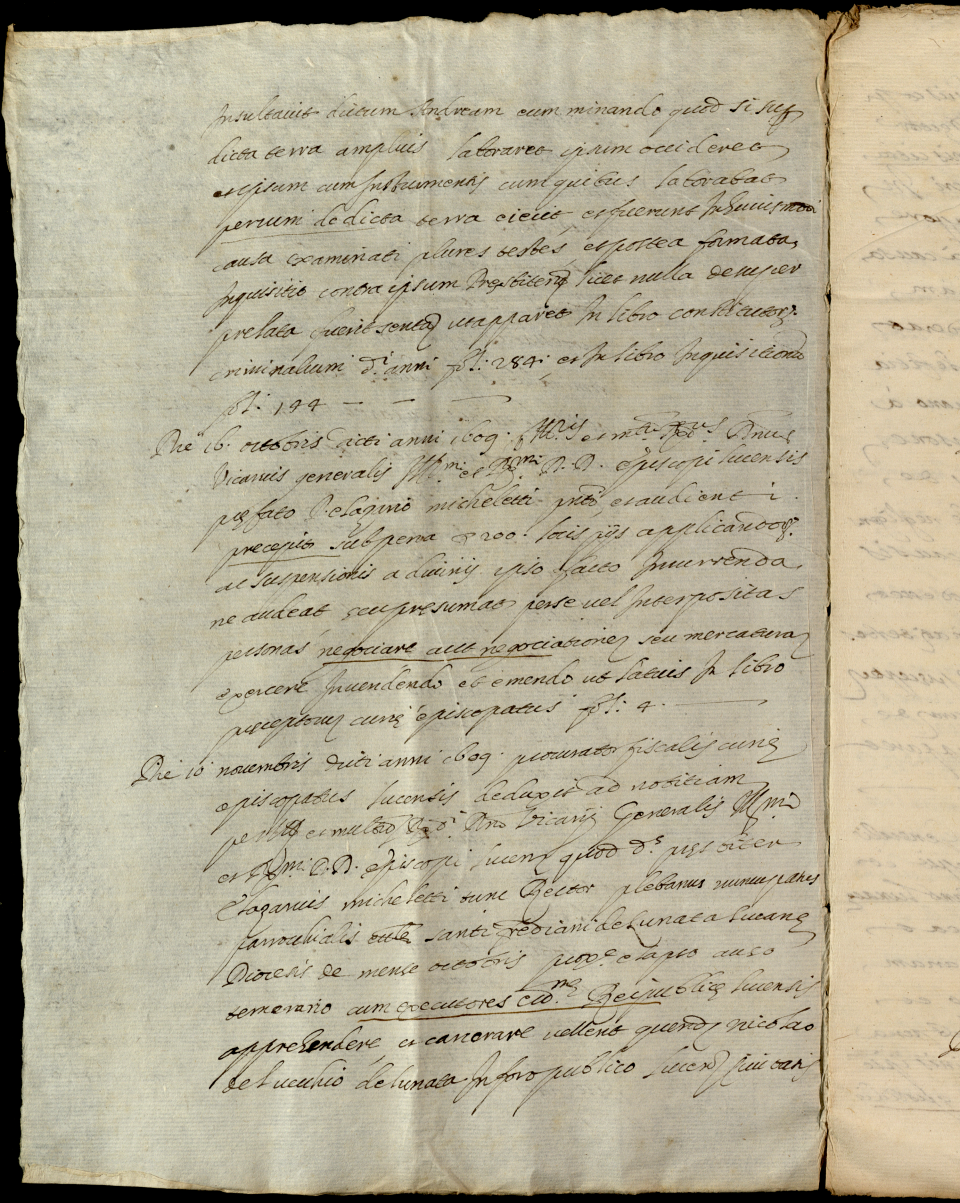 Insultavit dictum Andream cum minando quod si sup
dicta terra amplius laboraret ipsum occideret
et ipsum cum Instrumentis cum quibus laborabat
perium de dicta terra eiecit, et fuerunt In huiusmodi
causa examinati plures testes, et postea formata
Inquisitio contra ipsum Presbiterū licet nulla desuper
prelata fuerit senta ut apparet In libro constitutorz
criminalium d.i anni fol: 284. et In libro Inquisitionū
fol: 144 — — —
Die 16. ottobris dicti anni 1609. Ill.ris et m.tu R.dus Dnus
Vicarius generalis Ill.mi et R.mi D. D. episcopi lucensis
prefato P. elazario micheletti pnti et audienti
precepit sub pena 200. locis pijs applicandorz
ac suspensionis a divinis ipso facto Incurrenda
ne audeat seu presumat per se vel Interpositas
personas negociare aut negociationes seu mercatura
exercere In vendendo et emendo ut latius In libro
preceptorum curie episcopatus fol: 4. —
Die 10 novembris dicti anni 1609. procurator fiscalis curie
episcopatus lucensis deduxit ad notitiam
per Ill et multū R.di Dni Vicarij Generalis Ill.mi
et R.mi D. D. episcopi lucens quod d.s presbiter
elazarius micheletti tunc Rector plebanus nuncupatus
parrochialis eccle santi frediani de lunata lucane
Diocesis de mense ottobris prox.e elapso ausu
temerario cum executores Ex.me Reipublice lucensis
apprehendere, et carcerare vellent quendā nicolao
del vecchio de lunata In foro publico lucens Civitatis